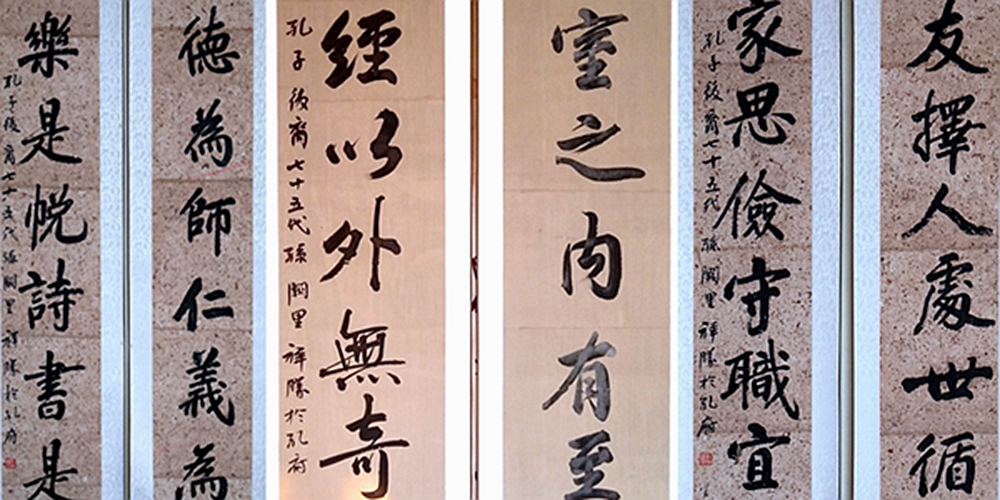 友擇人處世循
家思儉守職宜
孔子後裔七十五代孫闕里祥勝於孔府
室之内有至
經以外無奇
孔子後裔七十五代孫闕里祥勝於孔府
德為師仁義為
樂是悅詩書是
孔子後裔七十五代孫闕里祥勝於孔府